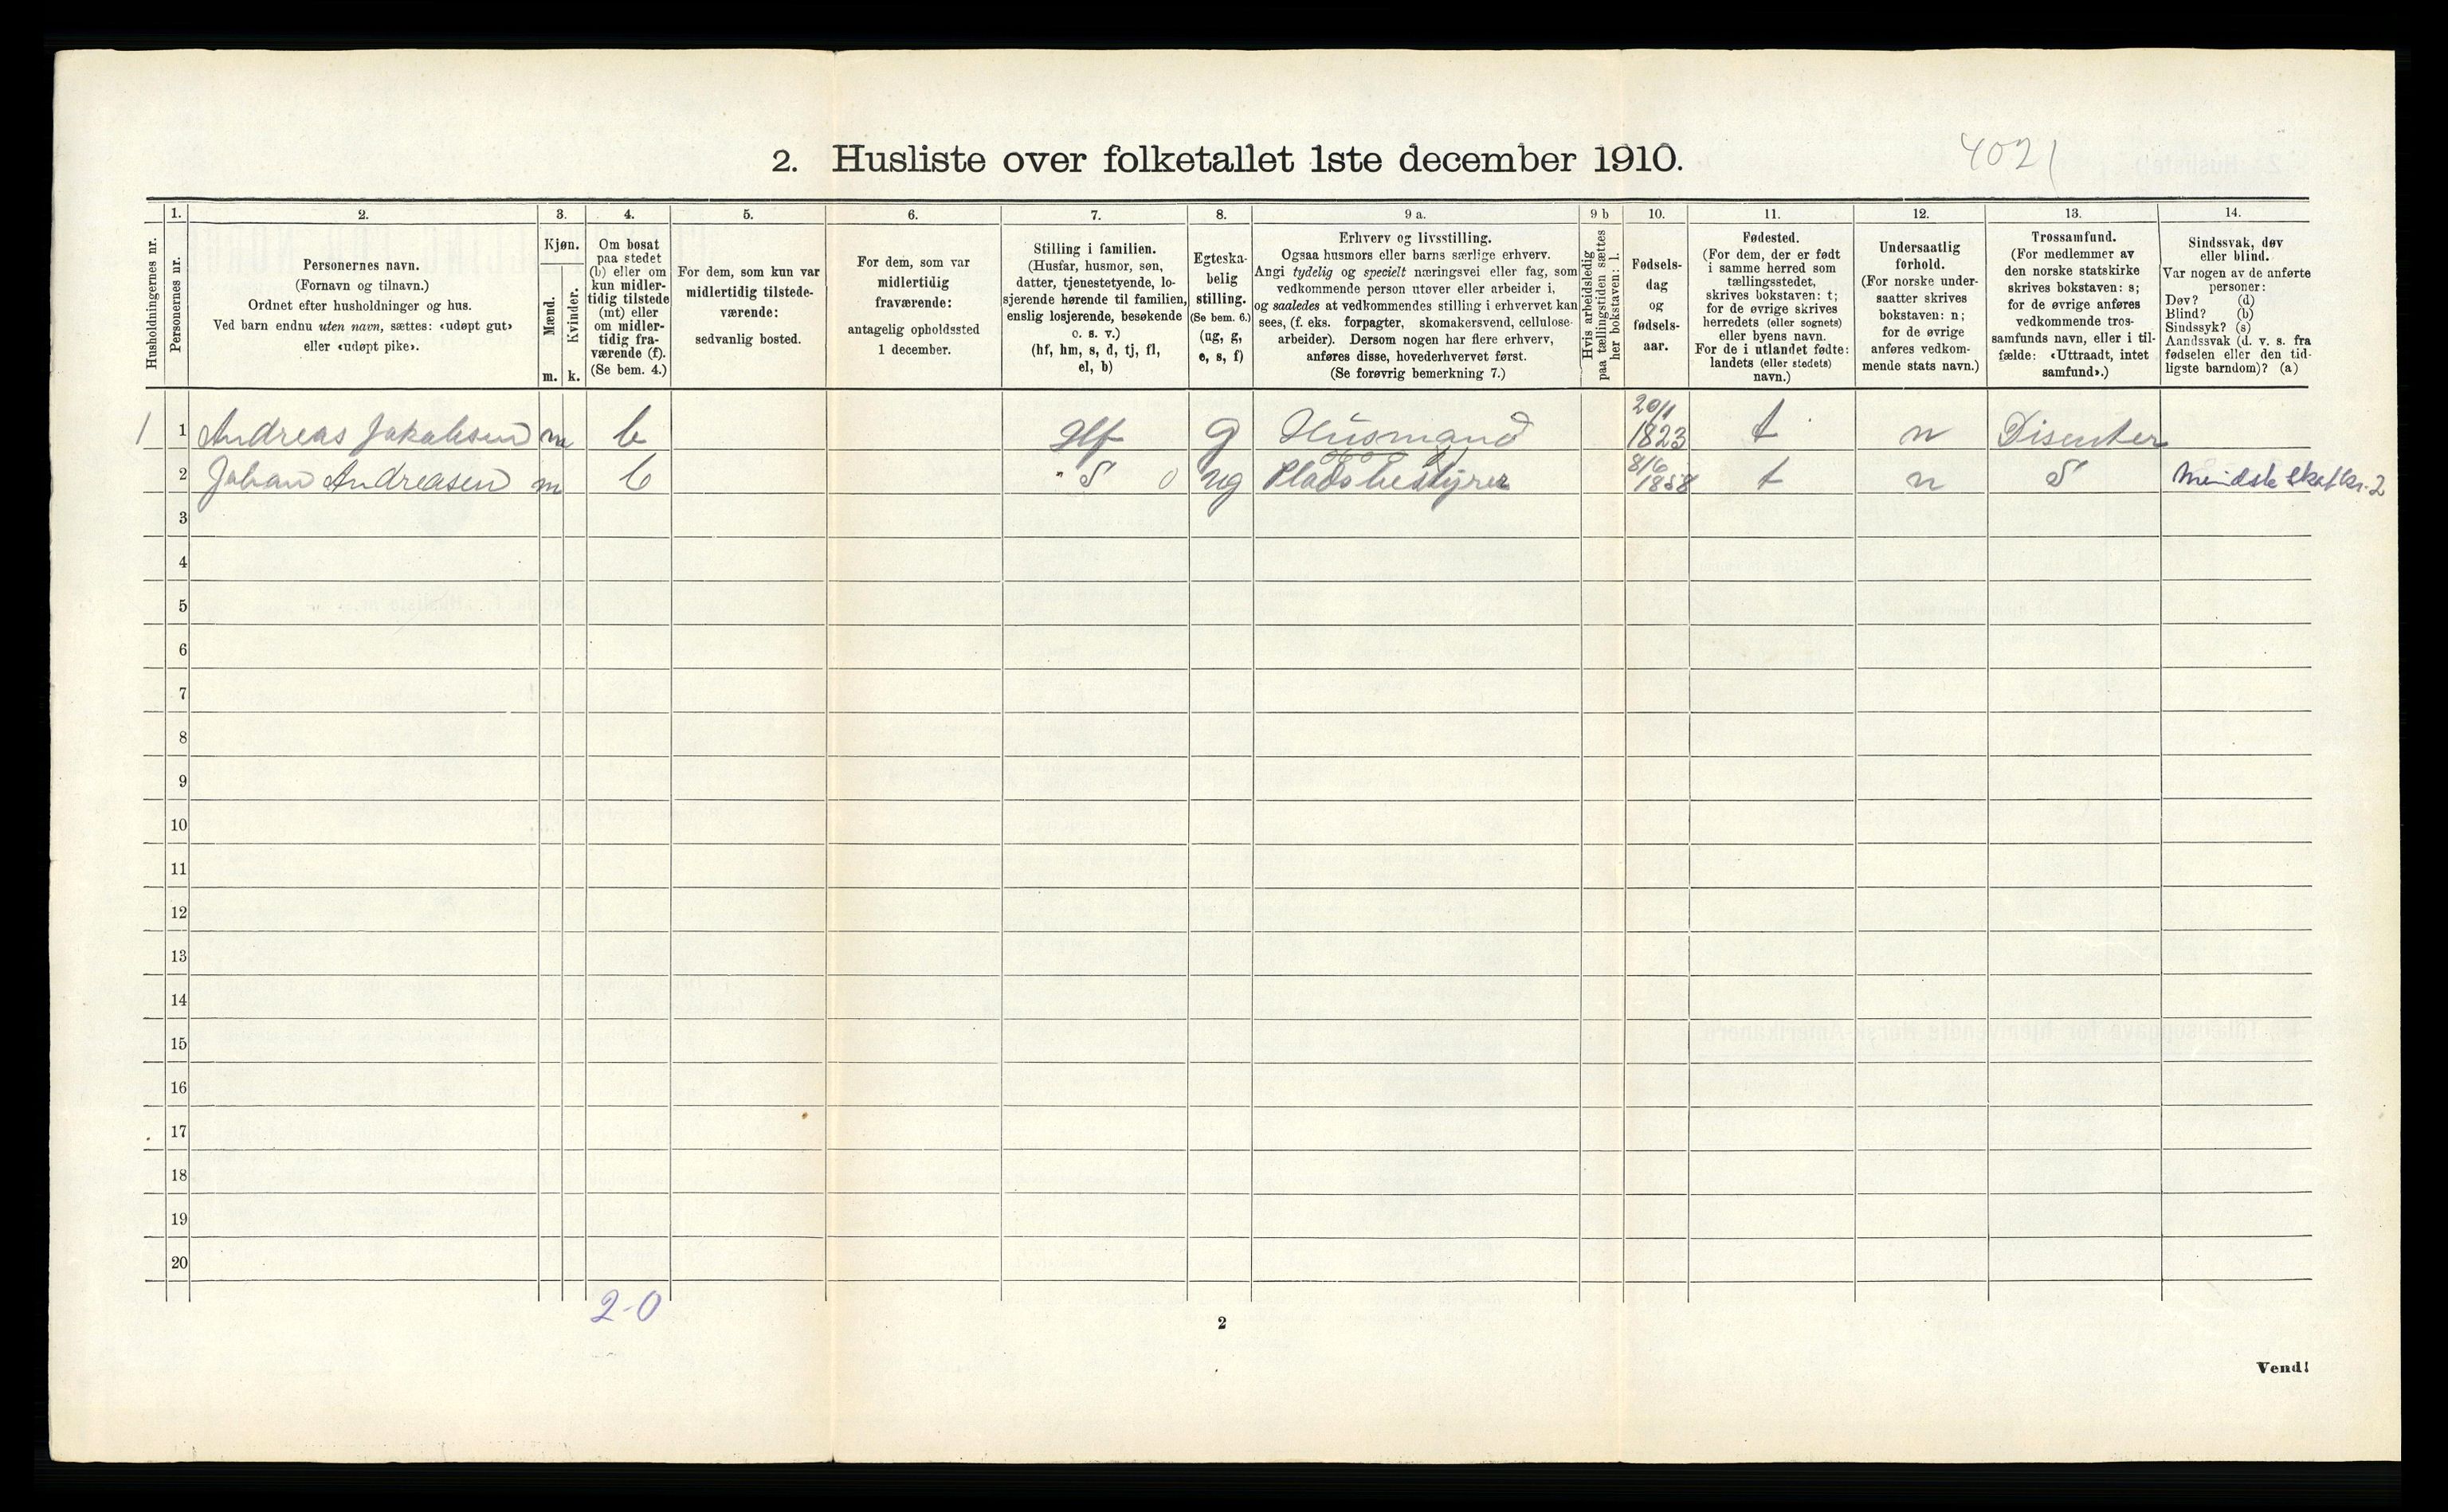 2. Husliste over folketallet 1ste december 1910.
4021
1. 2. 3. 4. 5. 6. 7. 8. 9 a. 9 b 10. 11. 12. 13. 14.
Husholdningernes nr.
Personernes nr.
Personernes navn.
(Fornavn og tilnavn.)
Ordnet efter husholdninger og hus.
Ved barn endnu uten navn, sættes: «udøpt gut»
eller «udøpt pike».
Kjøn.
Mænd.
Kvinder.
m. k.
Om bosat
paa stedet
(b) eller om
kun midler-
tidig tilstede
(mt) eller
om midler-
tidig fra-
værende (f).
(Se bem. 4.)
For dem, som kun var
midlertidig tilstede-
værende:
sedvanlig bosted.
For dem, som var
midlertidig
fraværende:
antagelig opholdssted
1 december.
Stilling i familien.
(Husfar, husmor, søn,
datter, tjenestetyende, lo-
sjerende hørende til familien,
enslig losjerende, besøkende
o. s. v.)
(hf, hm, s, d, tj, fl,
el, b)
Egteska-
belig
stilling.
(Se bem. 6.)
(ug, g,
e, s, f)
Erhverv og livsstilling.
Ogsaa husmors eller barns særlige erhverv.
Angi tydelig og specielt næringsvei eller fag, som
vedkommende person utøver eller arbeider i,
og saaledes at vedkommendes stilling i erhvervet kan
sees, (f. eks. forpagter, skomakersvend, cellulose-
arbeider). Dersom nogen har flere erhverv,
anføres disse, hovederhvervet først.
(Se forøvrig bemerkning 7.)
Hvis arbeidsledig
paa tællingstiden sættes
her bokstaven: l.
Fødsels-
dag
og
fødsels-
aar.
Fødested.
(For dem, der er født
i samme herred som
tællingsstedet,
skrives bokstaven: t;
for de øvrige skrives
herredets (eller sognets)
eller byens navn.
For de i utlandet fødte:
landets (eller stedets)
navn.)
Undersaatlig
forhold.
(For norske under-
saatter skrives
bokstaven: n;
for de øvrige
anføres vedkom-
mende stats navn.)
Trossamfund.
(For medlemmer av
den norske statskirke
skrives bokstaven: s;
for de øvrige anføres
vedkommende tros-
samfunds navn, eller i til-
fælde: «Uttraadt, intet
samfund».)
Sindssvak, døv
eller blind.
Var nogen av de anførte
personer:
Døv? (d)
Blind? (b)
Sindssyk? (s)
Aandssvak (d. v. s. fra
fødselen eller den tid-
ligste barndom)? (a)
1 1 Andreas Jakobsen m b Hf g Husmand 20/1 1823 t n Disenter
2 Johan Andreasen m b " S 0 ug Pladsbestyrer 8/6 1858 t n S Mindste Skat kr. 2
3
4
5
6
7
8
9
10
11
12
13
14
15
16
17
18
19
20
2-0
2
Vend!